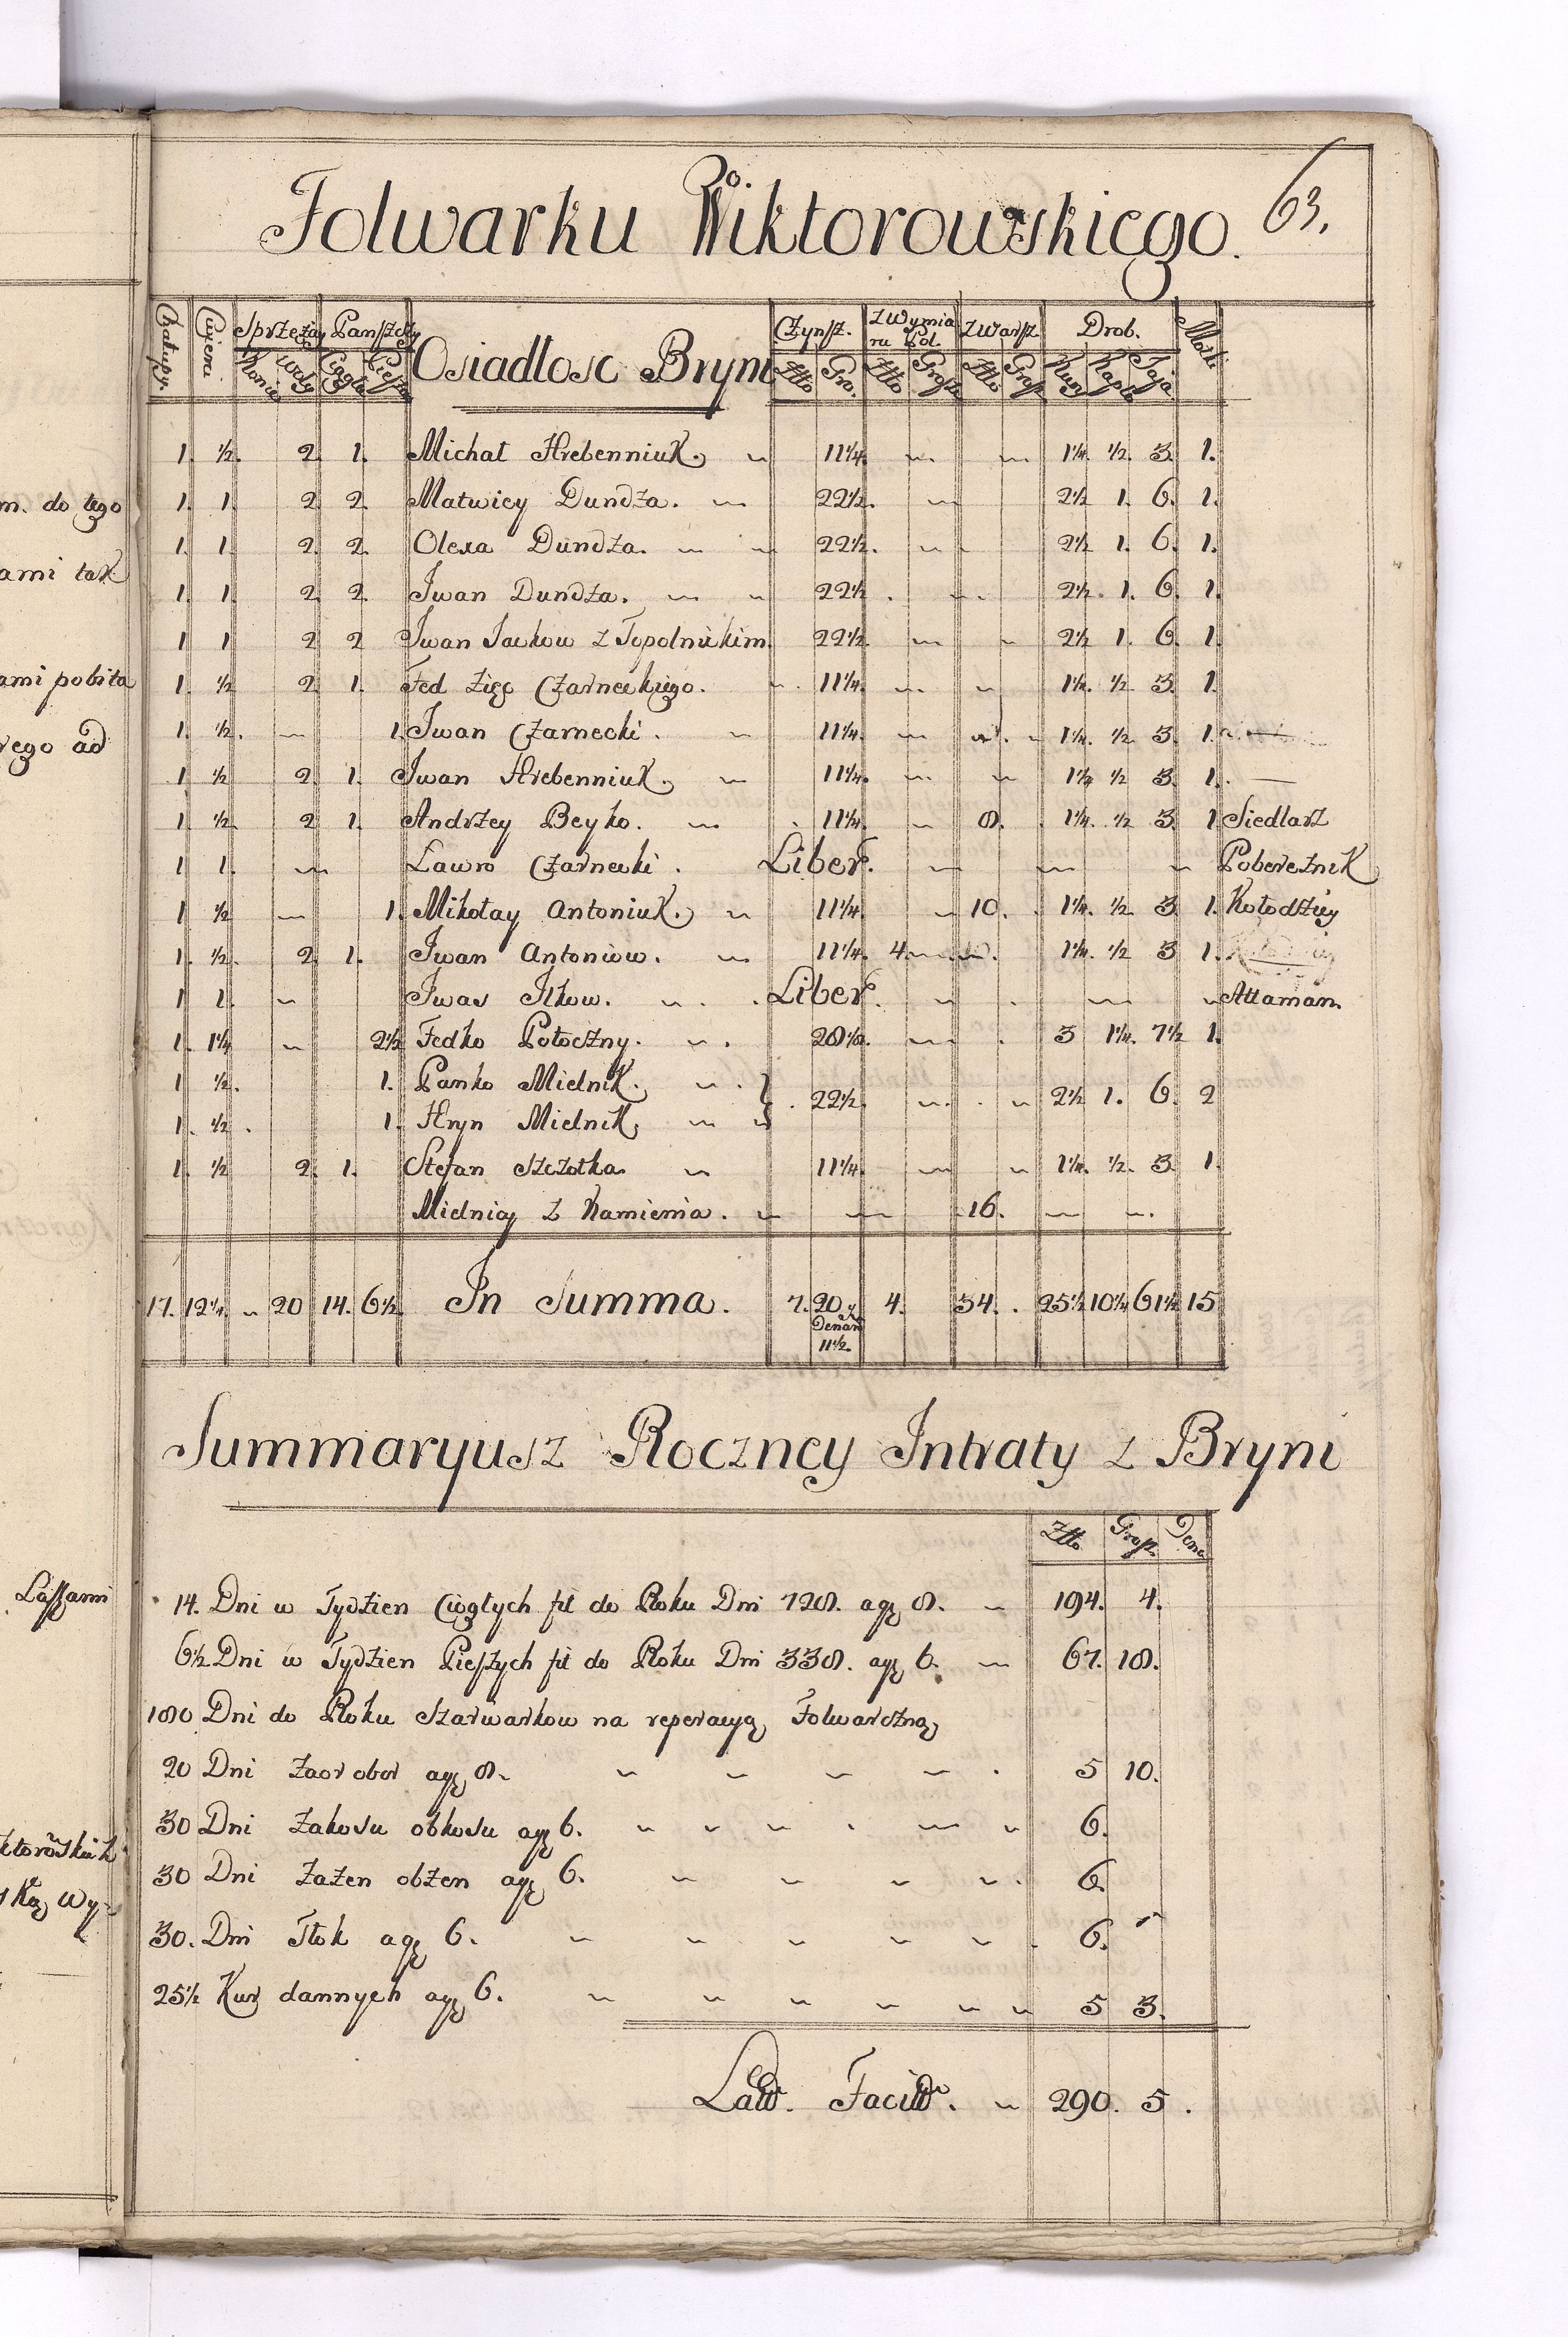 63.
Folwarku Wiktorowskiego.
Chałupy. Cwierci. Sprzężay Panszczyzny Osiadłosc Bryni Czynsz. z Wymia z Warsz. Drob. Motki
ru Pol.
Konie Woły Ciągła Piesza Złło Gro. Złło Grosz Złło Grosz Kury Kapło Jaja
1. ½. 2. 1. Michał Hrebenniuk. 11¼. 1¼. ½. 3. 1.
1. 1. 2 2. Matwiey Dundza. 22½. 2½ 1. 6. 1.
1. 1. 2. 2. Olexa Dundza. 22½. 2½ 1. 6. 1.
1. 1. 2. 2. Iwan Dundza. 22½ 2½. 1. 6. 1.
1. 1 2 2 Iwan Jackow z Topolnickim. 22½. 2½ 1. 6. 1.
1. ½ 2. 1. Fed Zięc Czarneckiego. 11¼. 1¼. ½ 3. 1.
1. ½. 1. Iwan Czarnecki. 11¼. 1¼. ½ 3. 1.
1 ½ 2. 1. Iwan Hrebenniuk. 11¼. 1¼ ½ 3. 1.
1. ½. 2 1. Andrzey Beyko. 11¼. 8. 1¼. ½ 3. 1. Siedlarz
1. 1. Lawro Czarnecki. Liber. Pobereznik
1 ½ 1. Mikołay Antoniuk. 11¼. 10. 1¼. ½. 3 1. Kołodziey
1. ½. 2. 1. Iwan Antoniow. 11¼. 4. 1¼. ½ 3 1.
1 1. Iwas Ilkow. Liber. Attaman.
1. 1¼ 2½ Fedko Potoczny. 28⅛. 3 1¼. 7½ 1.
1 ½. 1. Panko Mielnik. 22½. 2½ 1. 6. 2
1. ½. 1. Hryn Mielnik.
1. ½ 2. 1. Stefan Szczotka 11¼. 1¼. ½. 3. 1.
Mielnicy z Kamienia. 16.
17. 12¼. 20 14. 6½. In Summa. 7. 20. y 4. 34. 25½ 10¼ 61½ 15
Denar
11½.
Summaryusz Roczney Intraty z Bryni
Złło Grosz. Dena
14. Dni w Tydzien Cięglych fit do Roku Dni 728. agr 8. 194. 4.
6½ Dni w Tydzien Pieszych fit do Roku Dni 338. agr 6. 67. 18.
180 Dni do Roku Szarwarkow na reperacyą Folwarczną
20 Dni Zaor obor agr 8. 5 10.
30 Dni Zakosu obkosu agr 6. 6.
30 Dni Zazen obzen agr 6. 6.
30. Dni Tłok agr 6. 6.
25½ Kur dannych agr 6. 5 3.
Latt. Facitt. 290. 5.
m. do tego
ami tak
ami pobita
rego ad
Laszami